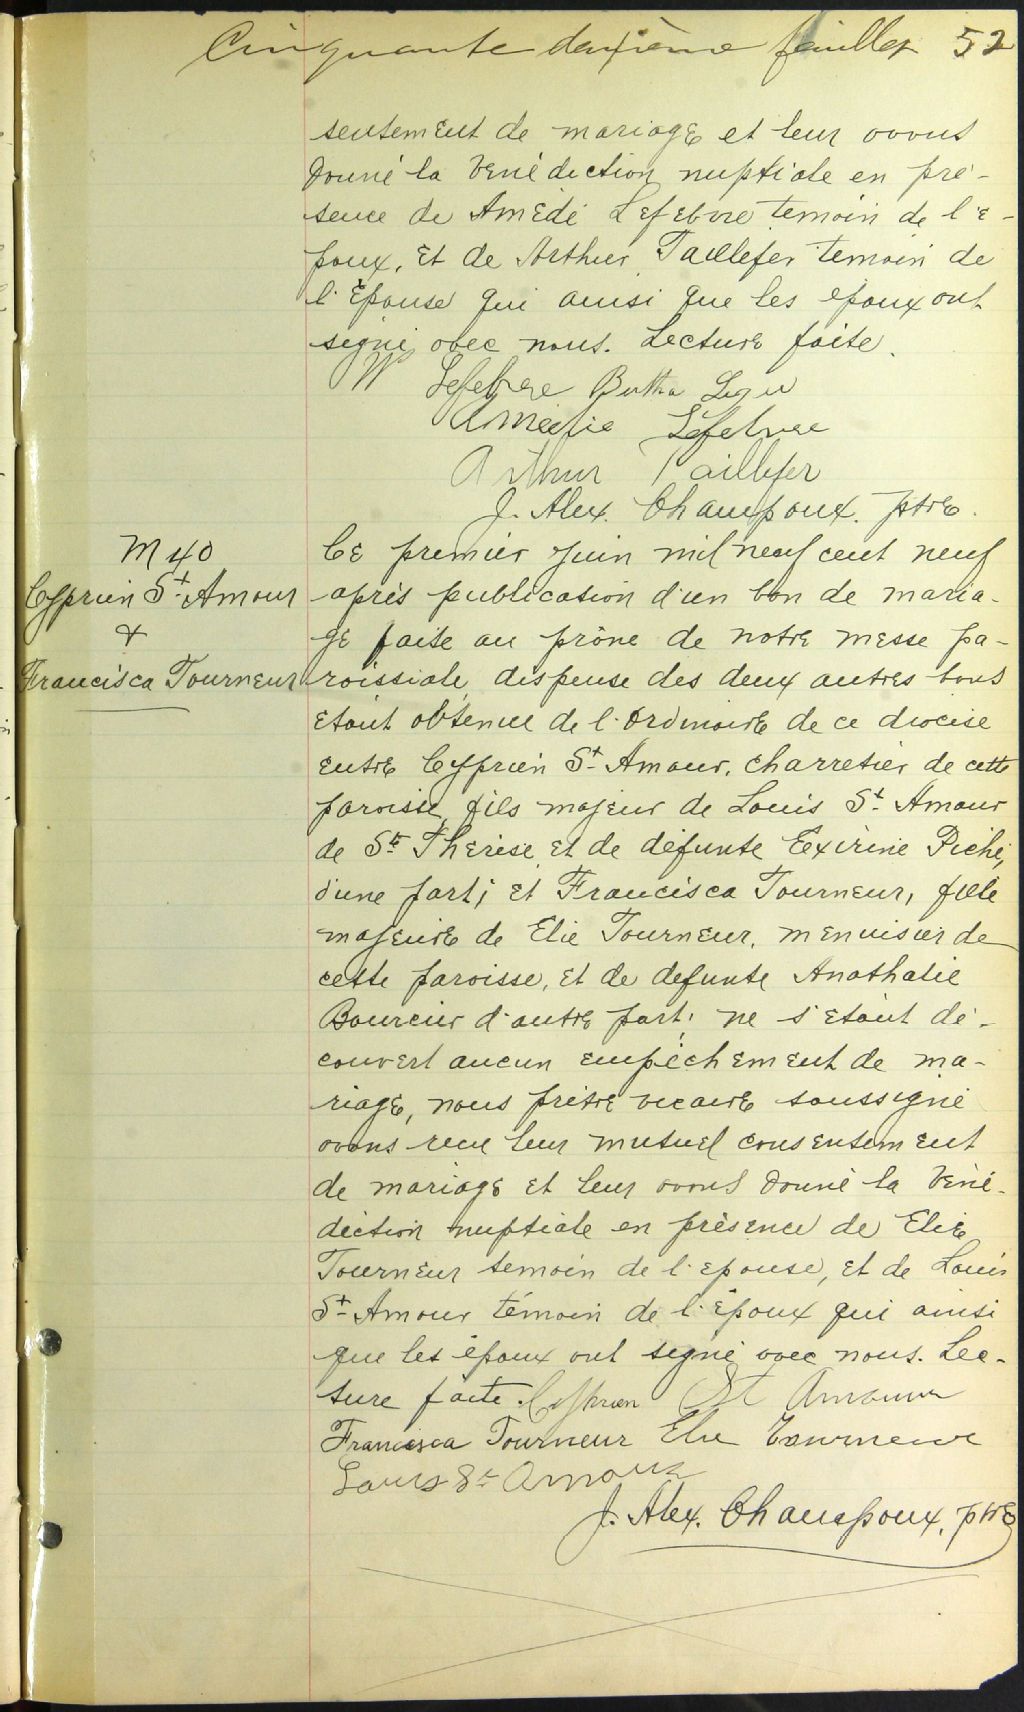 Cinquante deuxième feuillet 52
sentement de mariage et leur avons
donné la bénédiction nuptiale en pré-
sence de Amédé Lefebvre temoin de l'é-
poux, et de Arthur Taillefer temoin de
l'Épouse qui ainsi que les époux ont
signé avec nous. Lecture faite.
W Lefebvre Bertha
Amedie Lefebvre
Arthur Taillefer
J. Alex. Champoux. ptre.
M 40
Cyprien St Amour
&
Francisca Tourneur
Ce premier juin mil neuf cent neuf
après publication d'un ban de maria-
ge faite au prône de notre messe pa-
roissiale, dispense des deux autres bans
étant obtenue de l'Ordinaire de ce diocèse
entre Cyprien St Amour, charretier de cette
paroisse, fils majeur de Louis St Amour
de Ste Thérèse, et de défunte Exirine Piché,
d'une part; et Francisca Tourneur, fille
majeure de Elie Tourneur, menuisier de
cette paroisse, et de defunte Anathalie
Bourcier d'autre part; ne s'étant dé-
couvert aucun empêchement de ma-
riage, nous prêtre vicaire soussigné
avons reçu leur mutuel consentement
de mariage et leur avons donné la béné-
diction nuptiale en présence de Elie
Tourneur temoin de l'épouse, et de Louis
St Amour témoin de l'époux qui ainsi
que les époux ont signé avec nous. Lec-
ture faite. Cyprien St Amour
Francisca Tourneur Elie Tourneur
Louis St Amour
J. Alex. Champoux, ptre